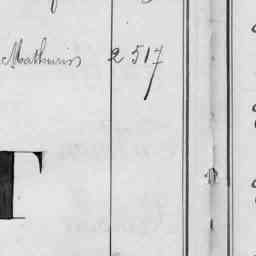 Mathurin 2517
T